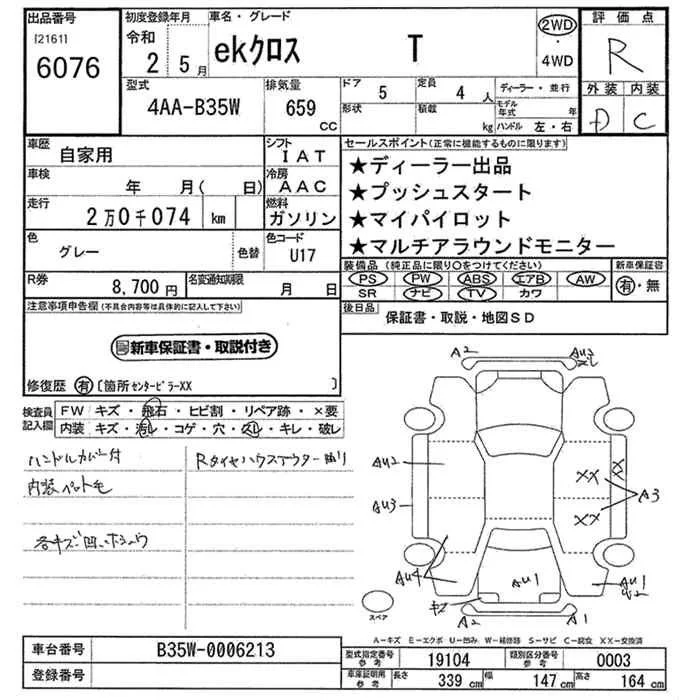 出品番号 初度登録年月 車名・グレード 評価点
[2161] 令和
6076 2 5月 ekクロス T 2WD・4WD R
外装 内装
D C
型式 排気量 ドア 5 定員 4人 ディーラー・並行
4AA-B35W 659 cc 形状 積載 kg モデル年式 年
ハンドル 左・右
車歴 自家用 シフト IAT
車検 年 月( 日) 冷房 AAC
走行 2万0千074 km 燃料 ガソリン
色 グレー 色替 色コード U17
R券 8,700円 名変通知期限 月 日
セールスポイント(正常に機能するものに限ります)
★ディーラー出品
★プッシュスタート
★マイパイロット
★マルチアラウンドモニター
装備品(純正品に限り○をつけてください) 新車保証書
PS PW ABS エアB AW 有・無
SR ナビ TV カワ
後日品 保証書・取説・地図SD
注意事項申告欄(不具合内容等は具体的に記入して下さい)
新車保証書・取説付き
修復歴 有 〔箇所 センターピラーXX 〕
検査員記入欄 FW キズ・飛石・ヒビ割・リペア跡・×要
内装 キズ・汚レ・コゲ・穴・スレ・キレ・破レ
ハンドルカバー付 Rタイヤハウスアウター曲り
内装ペット毛
各キズ凹
A2 AU3
AU2 XX XX X X A3
AU3
AU4 AU1 AU1
キズ A2 A1
スペア
A-キズ E-エクボ U-凹み W-補修跡 S-サビ C-腐食 XX-交換済
車台番号 B35W-0006213
登録番号
型式指定番号 参考 19104 類別区分番号 参考 0003
車庫証明用 参考 長さ 339 cm 幅 147 cm 高さ 164 cm